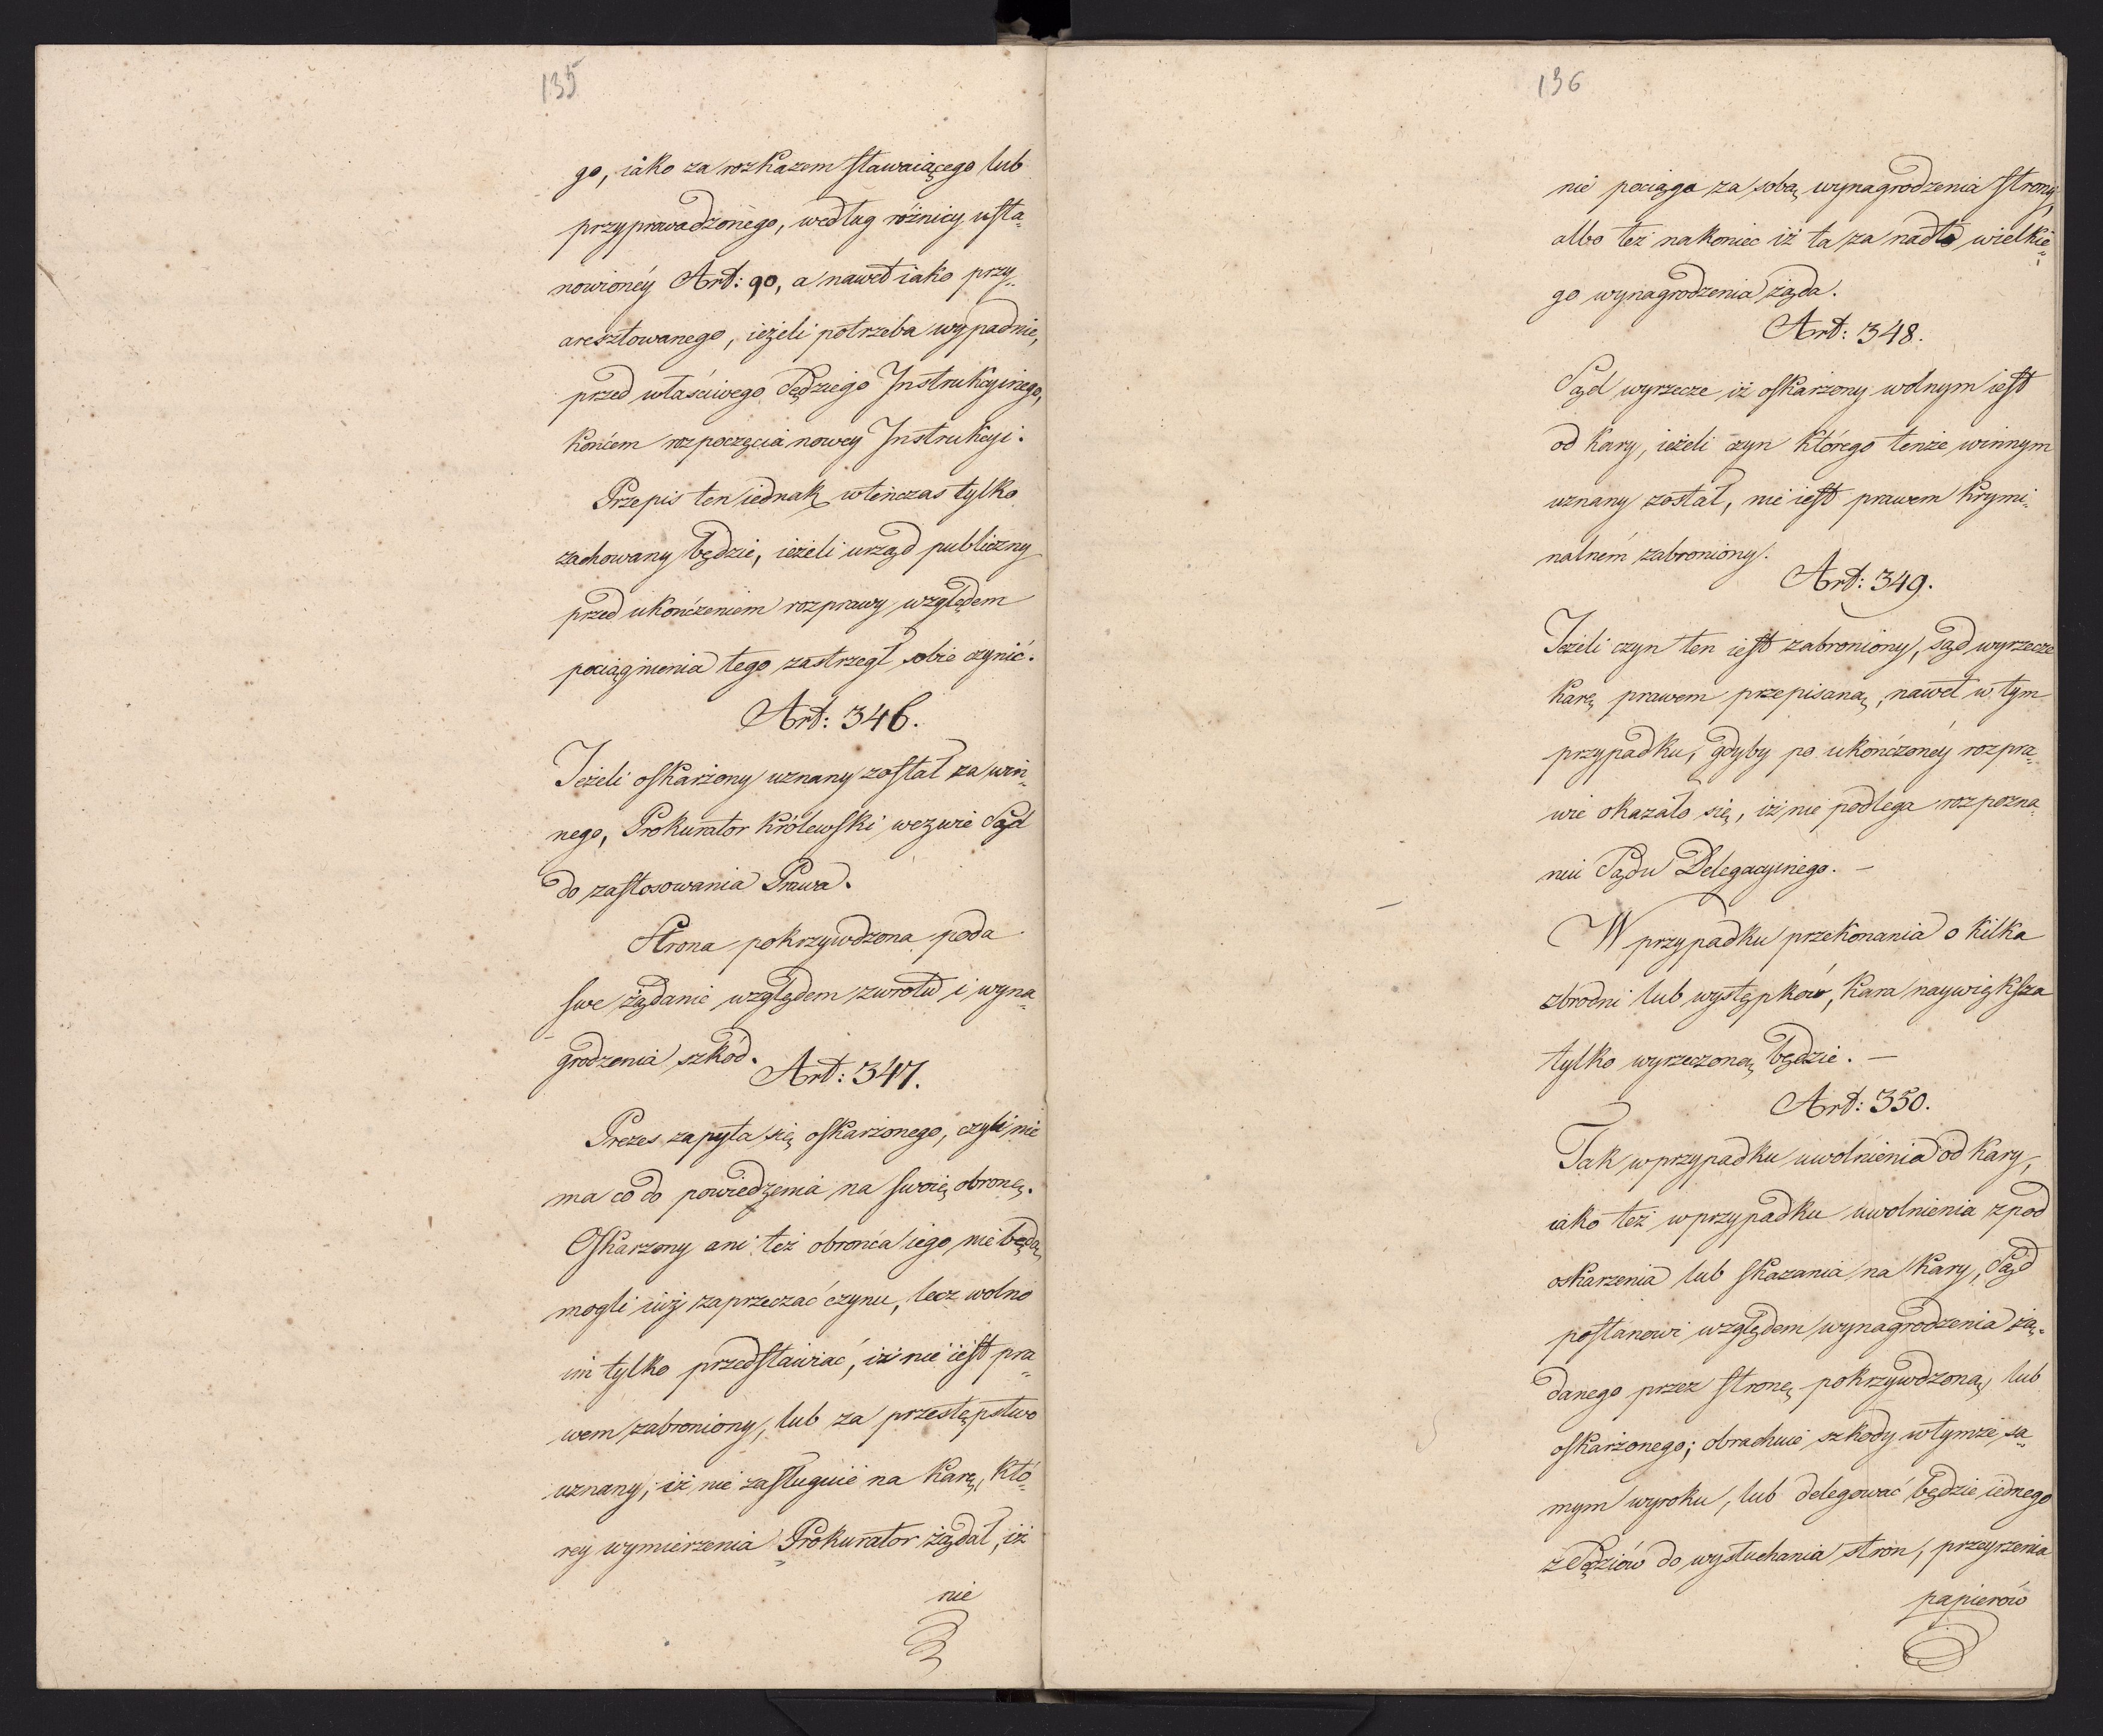 135
go, iako za rozkazem stawaiącego lub
przyprowadzonego, według różnicy usta„
nowionéy Art: 90, a nawet iako przy„
aresztowanego, ieżeli potrzeba wypadnie,
przed właściwego Sędziego Instrukcyinego,
końcem rozpoczęcia nowey Instrukcyi.
Przepis ten iednak wtenczas tylko
zachowany będzie, ieżeli urząd publiczny
przed ukończeniem rozprawy względem
pociągnienia tego zastrzegł sobie czynić.
Art: 346.
Jeżeli oskarżony uznany został za win„
nego, Prokurator Królewski wezwie Sąd
do zastosowania Prawa.
Strona pokrzywdzona poda
swe żądanie względem zwrotu i wyna„
grodzenia szkód.
Art: 347.
Prezes zapyta się oskarżonego, czyli nie
ma co do powiedzenia na swoię obronę.
Oskarzony ani też obrońca iego nie będą
mogli iuż zaprzeczać czynu, lecz wolno
im tylko przedstawiać, iż nie iest pra„
wem zabroniony, lub za przestępstwo
uznany, iż nie zasługuie na karę, któ„
rey wymierzenia Prokurator żądał, iż
nie
136
nie pociąga za sobą wynagrodzenia strony,
albo też nakoniec iż ta za nadto wielkie„
go wynagrodzenia żąda.
Art: 348.
Sąd wyrzecze iż oskarżony wolnym iest
od kary, ieżeli czyn którego tenże winnym
uznany został, nie iest prawem krymi„
nalném zabroniony.
Art: 349.
Jeżeli czyn ten iest zabroniony, sąd wyrzecze
karę prawem przepisaną, nawet w tym
przypadku, gdyby po ukończonéy rozpra„
wie okazało się, iż nie podlega rozpozna„
niu Sądu Delegacyinego. —
W przypadku przekonania o kilka
zbrodni lub występków, kara naywiększa
tylko wyrzeczoną będzie. —
Art: 350.
Tak w przypadku uwolnienia od kary,
iako też w przypadku uwolnienia z pod
oskarzenia lub skazania na kary, Sąd
postanowi względem wynagrodzenia żą„
danego przez stronę pokrzywdzoną lub
oskarżonego; obrachuie szkody w tymże sa„
mym wyroku, lub delegować będzie iednego
z Sędziów do wysłuchania stron, przeyrzenia
papierów